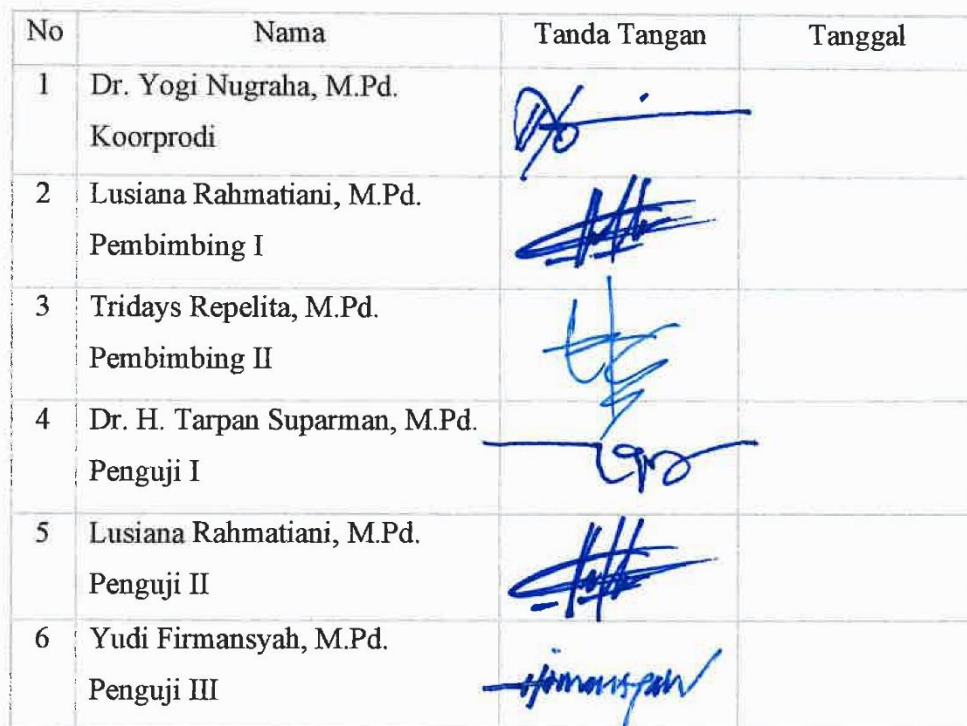 No Nama Tanda Tangan Tanggal
1 Dr. Yogi Nugraha, M.Pd.
Koorprodi
2 Lusiana Rahmatiani, M.Pd.
Pembimbing I
3 Tridays Repelita, M.Pd.
Pembimbing II
4 Dr. H. Tarpan Suparman, M.Pd.
Penguji I
5 Lusiana Rahmatiani, M.Pd.
Penguji II
6 Yudi Firmansyah, M.Pd.
Penguji III